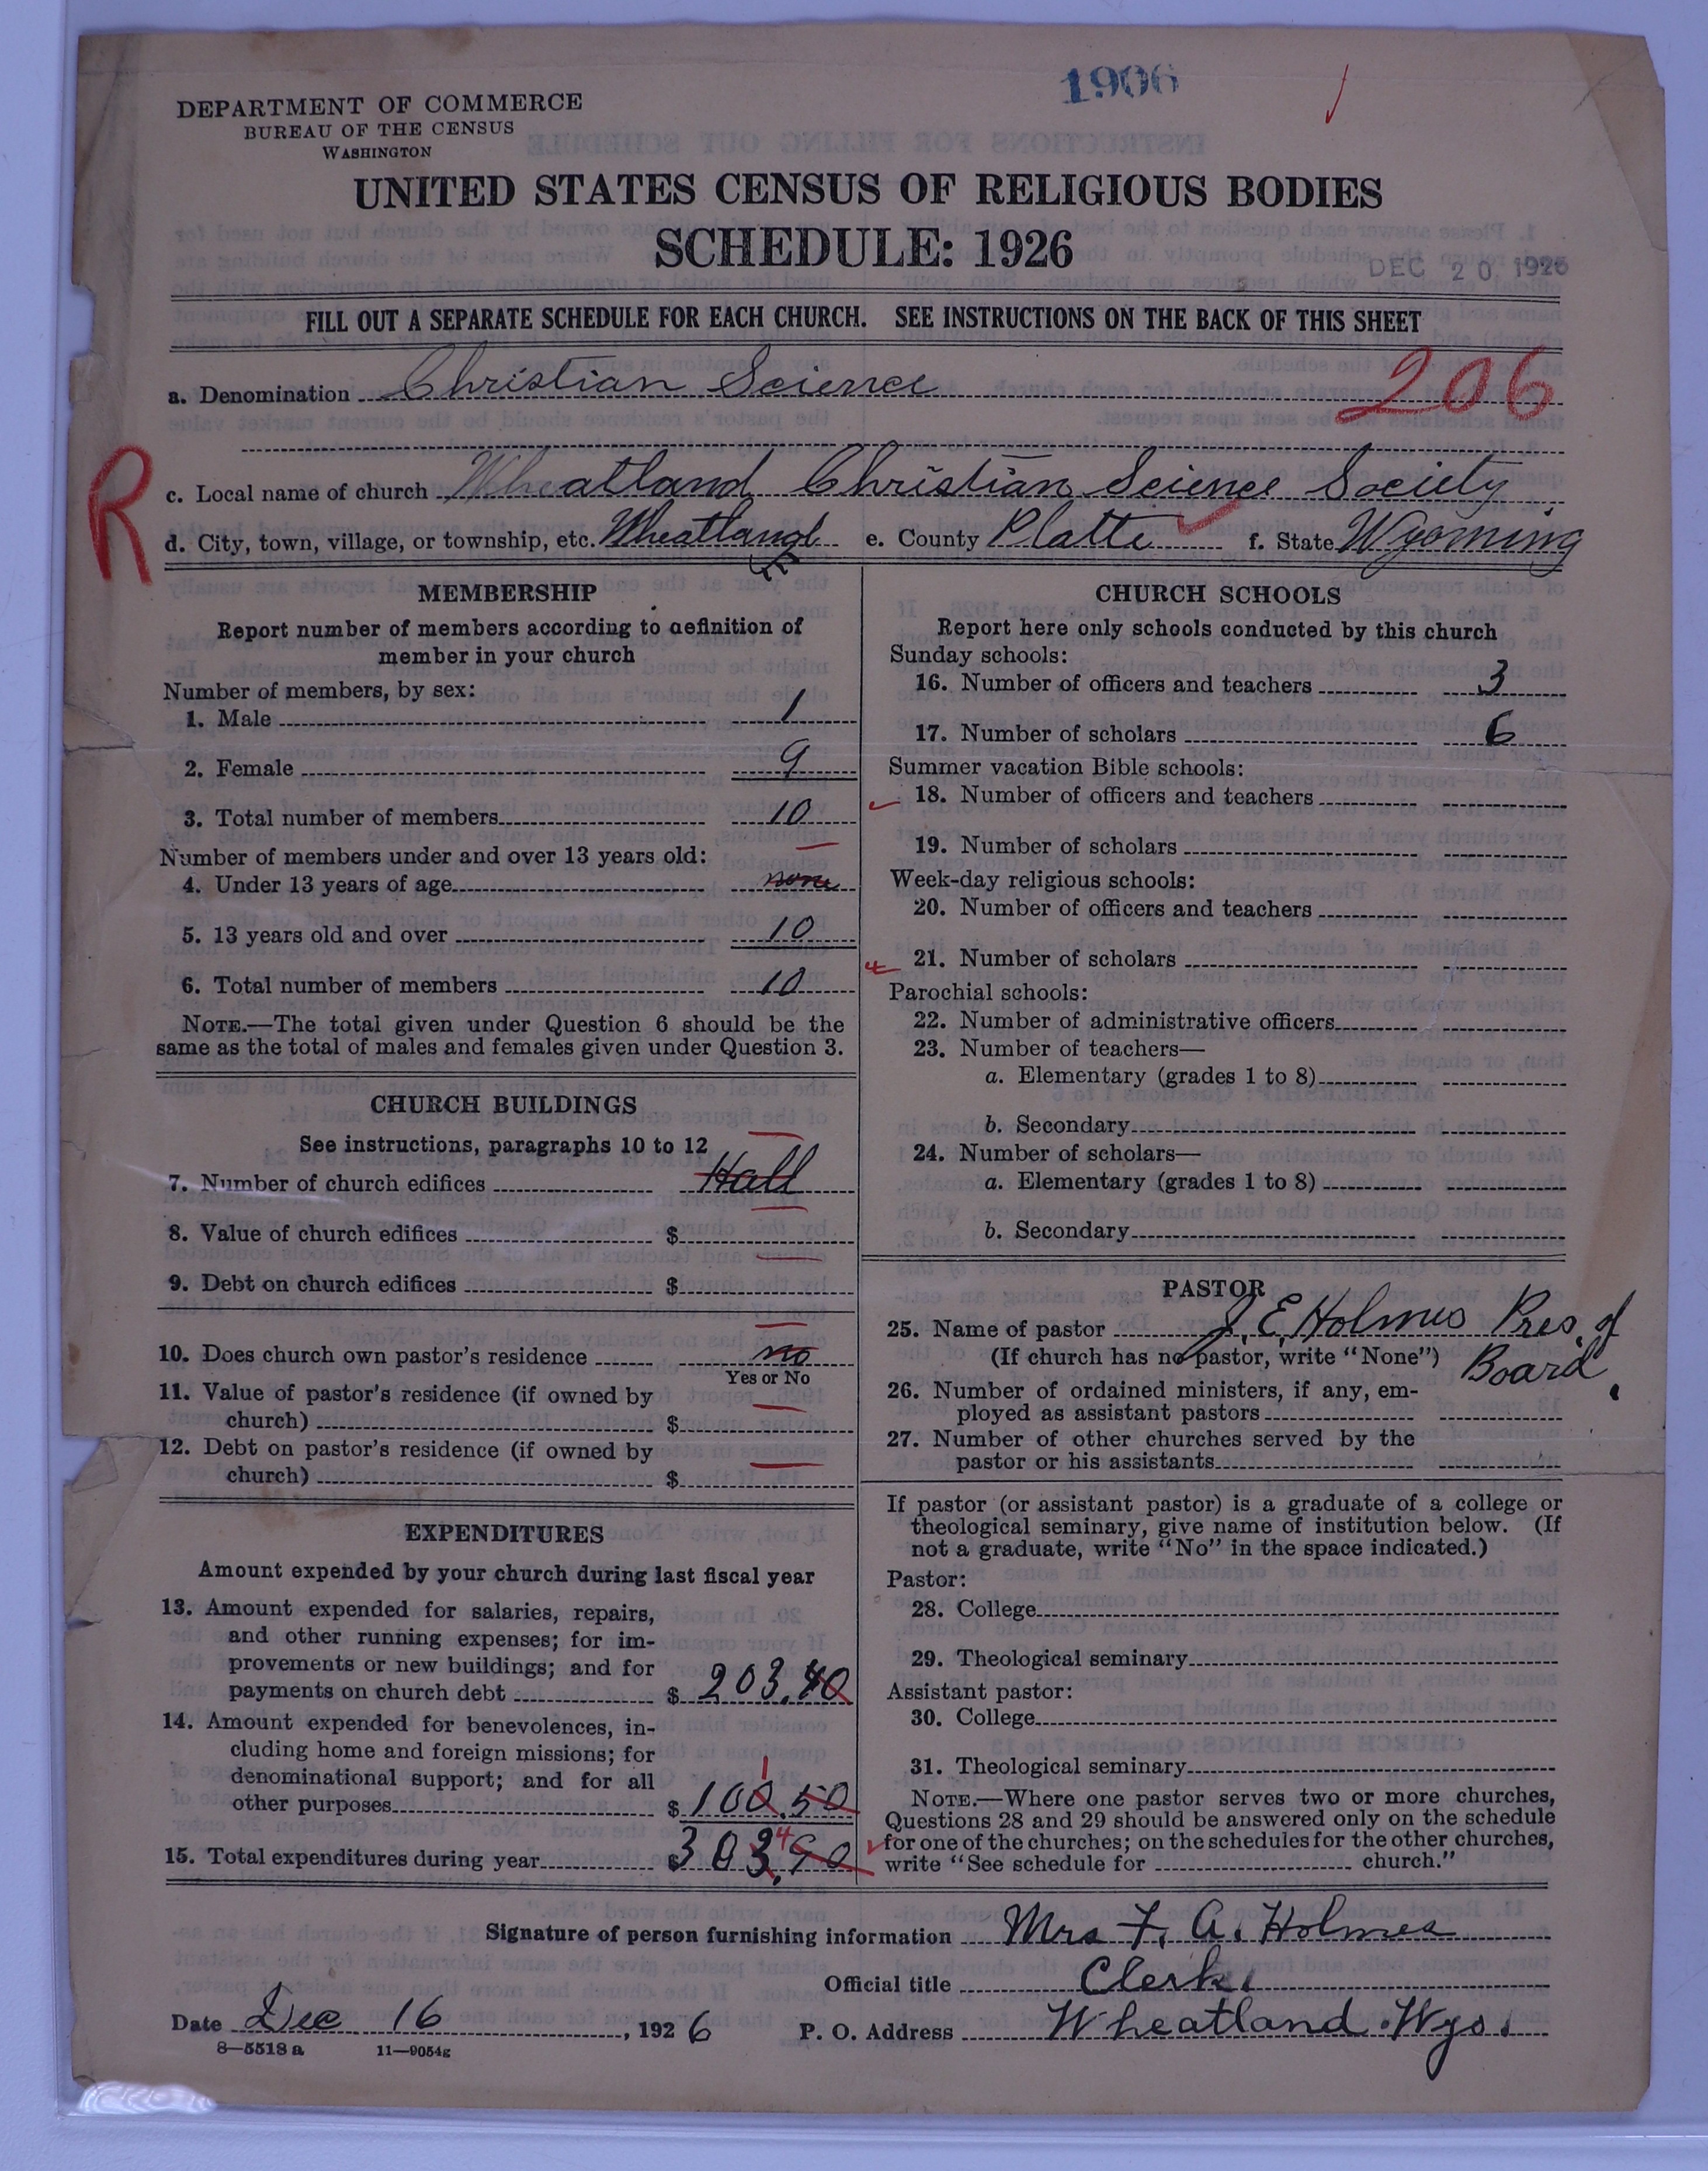 1906
DEPARTMENT OF COMMERCE
BUREAU OF THE CENSUS
WASHINGTON
UNITED STATES CENSUS OF RELIGIOUS BODIES
SCHEDULE: 1926
DEC 20 1926
FILL OUT A SEPARATE SCHEDULE FOR EACH CHURCH. SEE INSTRUCTIONS ON THE BACK OF THIS SHEET
206
a. Denomination Christian Science
R
c. Local name of church Wheatland Christian Science Society
d. City, town, village, or township, etc. Wheatland e. County Platte f. State Wyoming
MEMBERSHIP
Report number of members according to definition of
member in your church
Number of members, by sex:
1. Male 1
2. Female 9
3. Total number of members 10
Number of members under and over 13 years old:
4. Under 13 years of age none
5. 13 years old and over 10
6. Total number of members 10
NOTE.—The total given under Question 6 should be the
same as the total of males and females given under Question 3.
CHURCH BUILDINGS
See instructions, paragraphs 10 to 12
7. Number of church edifices Hall
8. Value of church edifices $
9. Debt on church edifices $
10. Does church own pastor's residence no
Yes or No
11. Value of pastor's residence (if owned by
church) $
12. Debt on pastor's residence (if owned by
church) $
EXPENDITURES
Amount expended by your church during last fiscal year
13. Amount expended for salaries, repairs,
and other running expenses; for im-
provements or new buildings; and for
payments on church debt $ 203.40
14. Amount expended for benevolences, in-
cluding home and foreign missions; for
denominational support; and for all
1
other purposes $ 100.50
4
15. Total expenditures during year $ 303.90
CHURCH SCHOOLS
Report here only schools conducted by this church
Sunday schools:
16. Number of officers and teachers 3
17. Number of scholars 6
Summer vacation Bible schools:
18. Number of officers and teachers
19. Number of scholars
Week-day religious schools:
20. Number of officers and teachers
21. Number of scholars
Parochial schools:
22. Number of administrative officers
23. Number of teachers—
a. Elementary (grades 1 to 8)
b. Secondary
24. Number of scholars—
a. Elementary (grades 1 to 8)
b. Secondary
PASTOR
25. Name of pastor J. E. Holmes Pres. of
(If church has no pastor, write "None") Board.
26. Number of ordained ministers, if any, em-
ployed as assistant pastors
27. Number of other churches served by the
pastor or his assistants
If pastor (or assistant pastor) is a graduate of a college or
theological seminary, give name of institution below. (If
not a graduate, write "No" in the space indicated.)
Pastor:
28. College
29. Theological seminary
Assistant pastor:
30. College
31. Theological seminary
NOTE.—Where one pastor serves two or more churches,
Questions 28 and 29 should be answered only on the schedule
for one of the churches; on the schedules for the other churches,
write "See schedule for church."
Signature of person furnishing information Mrs F. A. Holmes
Official title Clerk.
Date Dec 16, 1926 P. O. Address Wheatland. Wyo.
8—5518 a 11—9054g